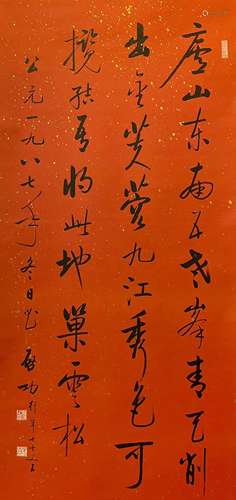 庐山东南五老峰青天削
出金芙蓉九江秀色可
揽结吾将此地巢云松
公元一九八七年冬日书启功行年七十五